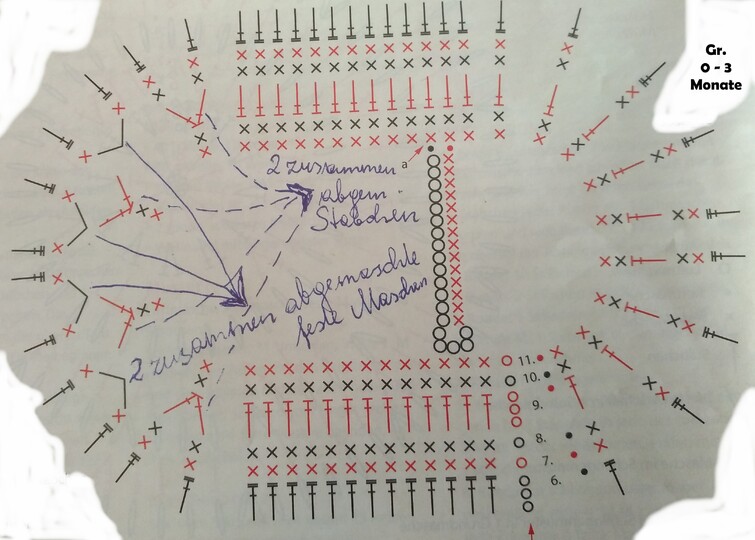 Gr.
0 - 3
Monate
2 zusammen
a
abgem.
Stäbchen
2 zusammen abgemaschte
feste Maschen
11.
10.
9.
8.
7.
6.